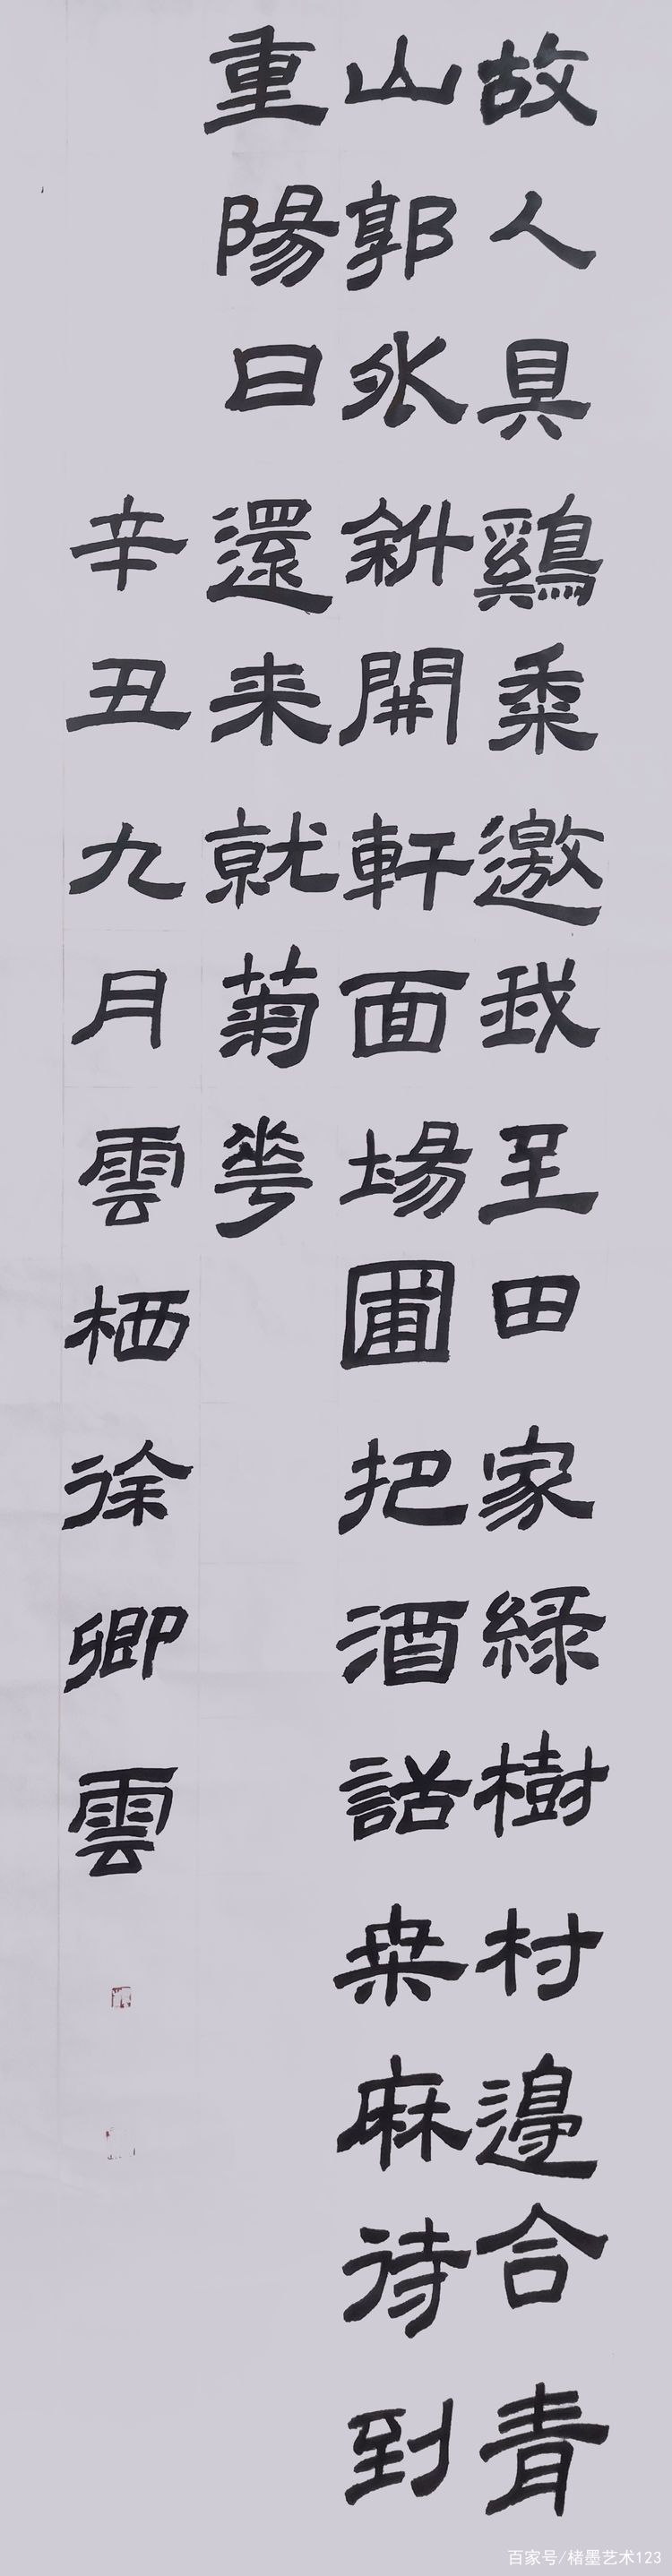 故人具鷄黍邀我至田家綠樹村邊合青
山郭外斜開軒面場圃把酒話桑麻待到
重陽日還来就菊華
辛丑九月雲栖徐卿雲
百家号/楮墨艺术123